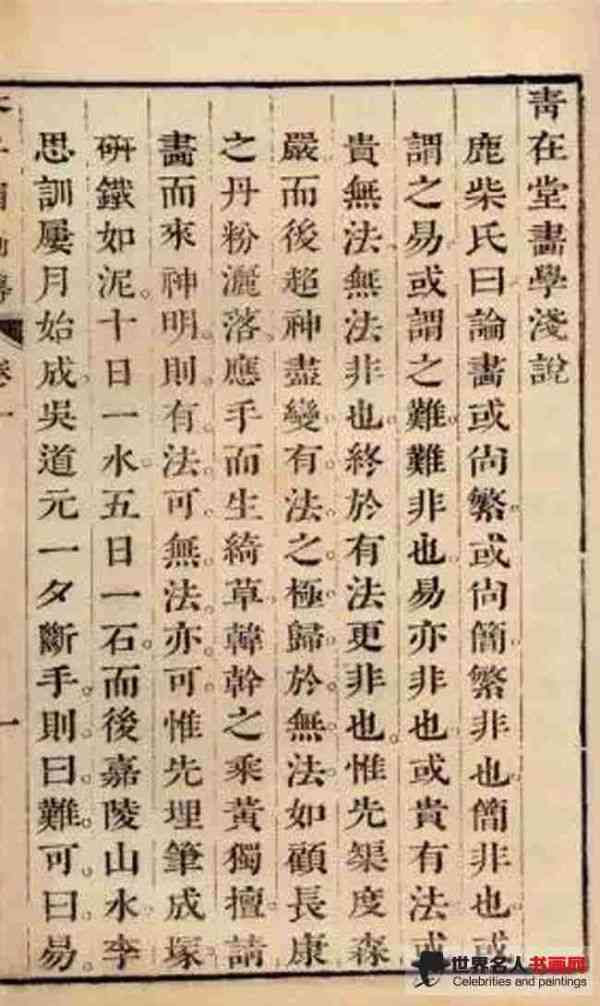 青在堂畫學淺說
鹿柴氏曰論畫或尚繁。或尚簡。繁非也。簡非也。或
謂之易。或謂之難。難非也。易亦非也。或貴有法。或
貴無法。無法非也。終於有法更非也。惟先榘度森
嚴。而後超神盡變。有法之極。歸於無法。如顧長康
之丹粉灑落。應手而生綺草。韓幹之乘黃獨擅。請
畫而來神明。則有法可。無法亦可。惟先埋筆成塚。
研鐵如泥。十日一水。五日一石。而後嘉陵山水。李
思訓屢月始成。吳道元一夕斷手。則曰難。可曰易。
一
世界名人书画网
Celebrities and paintings